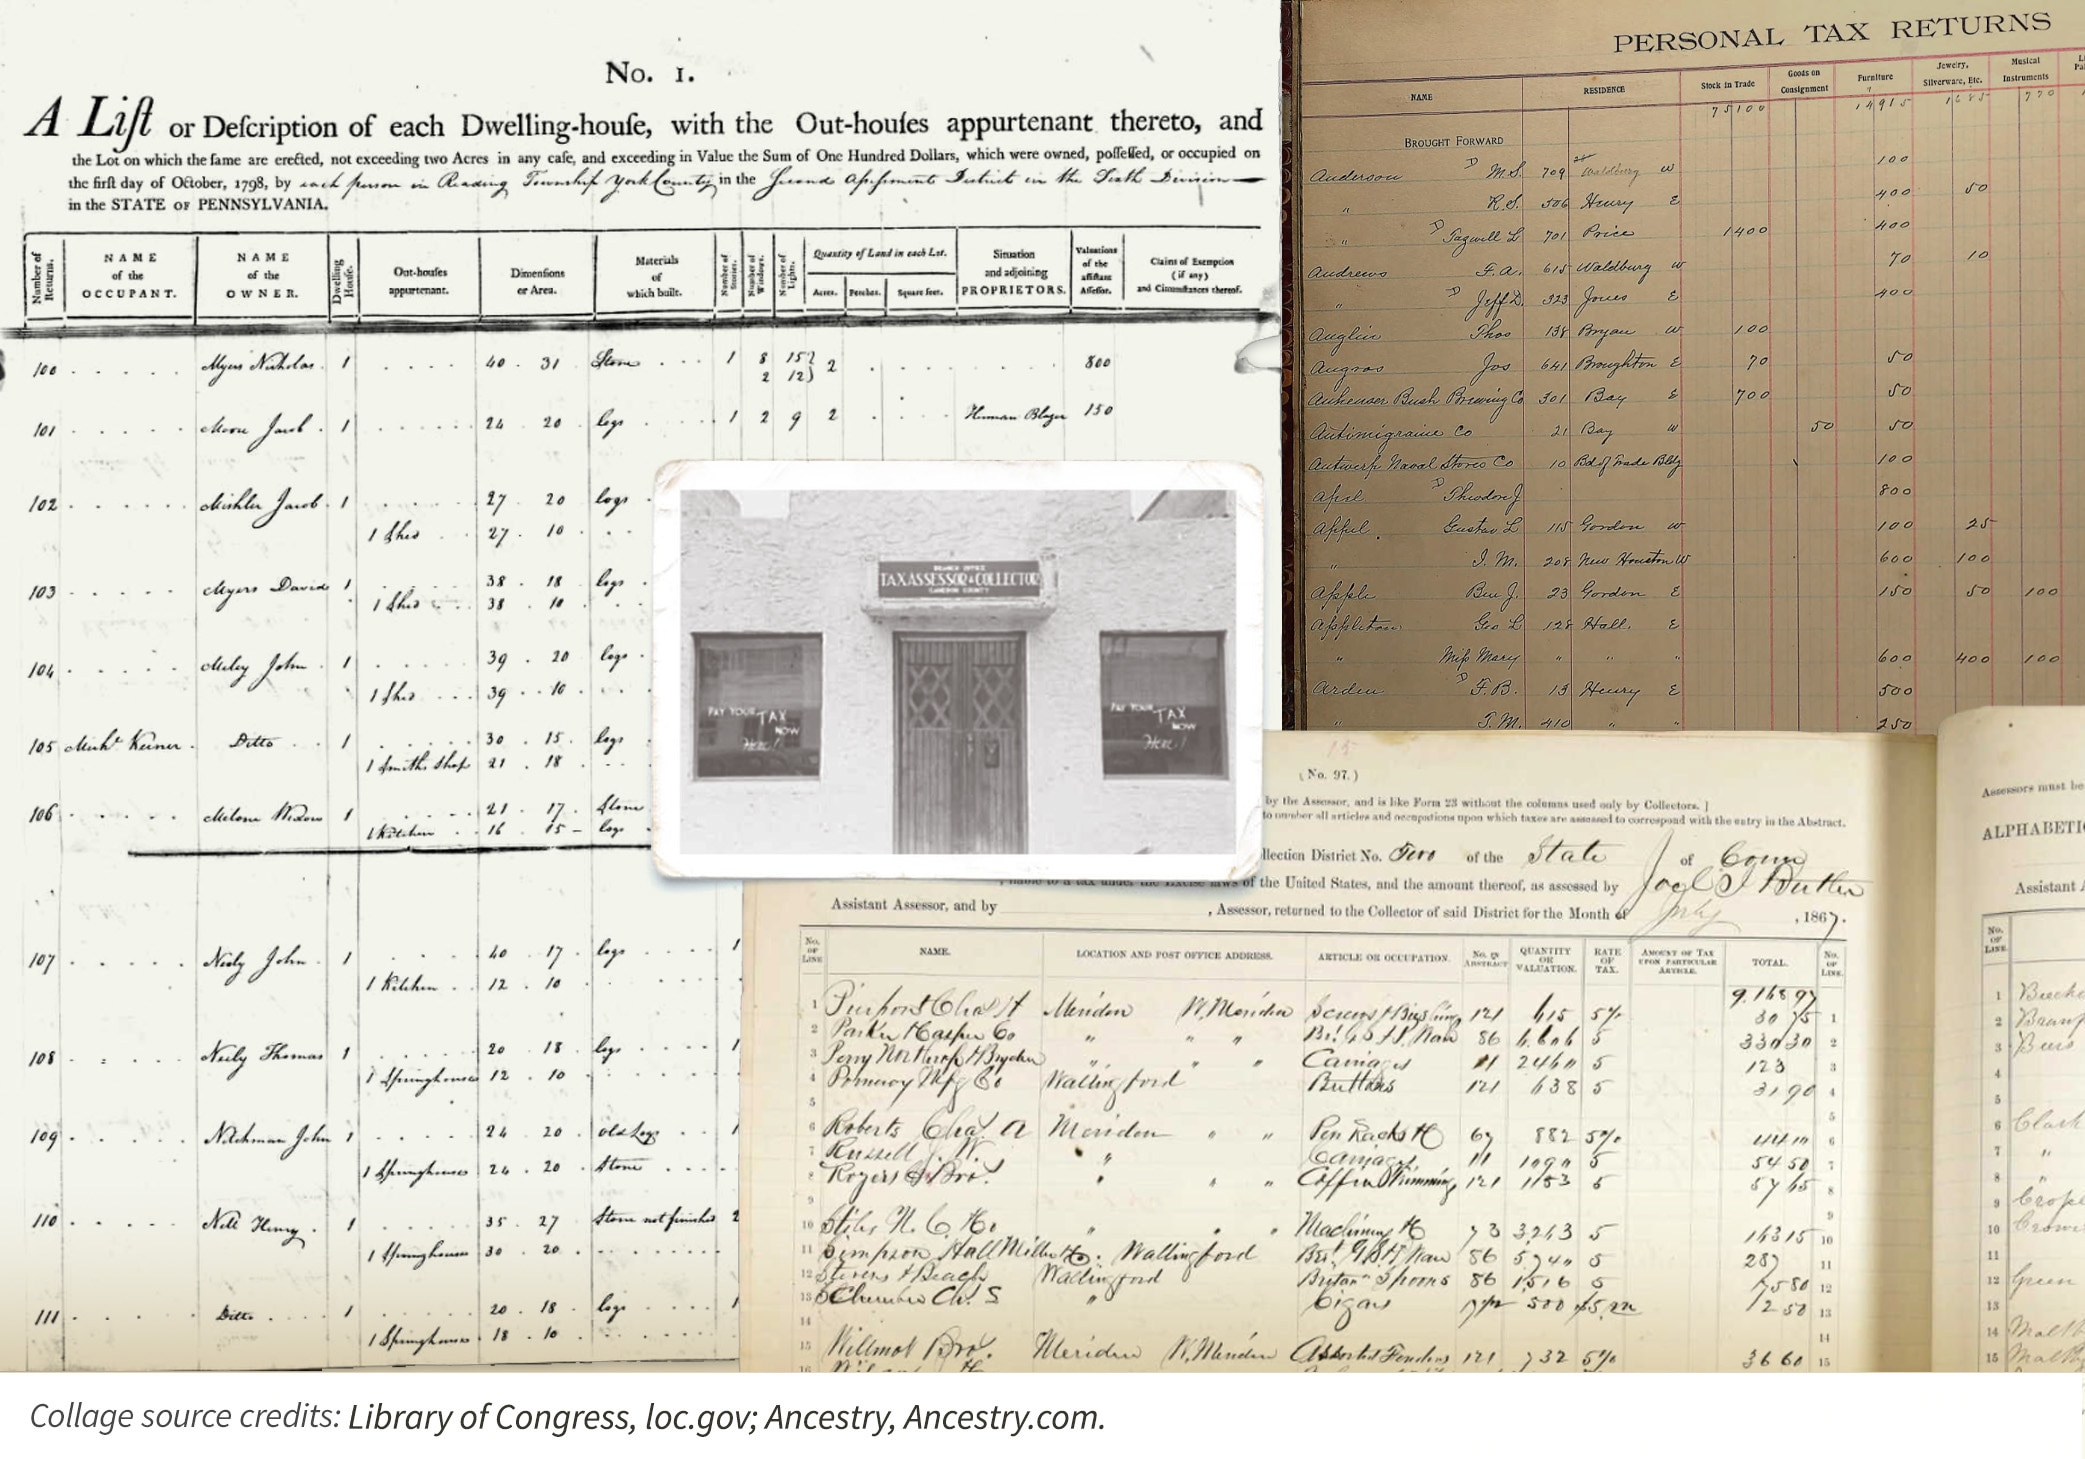 No. 1.
A Liſt or Deſcription of each Dwelling-houſe, with the Out-houſes appurtenant thereto, and
the Lot on which the ſame are erected, not exceeding two Acres in any caſe, and exceeding in Value the Sum of One Hundred Dollars, which were owned, poſſeſſed, or occupied on
the firſt day of October, 1798, by each person in Reading Township York County in the Second Assessment District in the Sixth Division
in the STATE OF PENNSYLVANIA.
Number of Returns. NAME of the OCCUPANT. NAME of the OWNER. Dwelling Houſe. Out-houſes appurtenant. Dimenſions or Area. Materials of which built. Number of Stories. Number of Windows. Number of Lights. Quantity of Land in each Lot. Acres. Perches. Square feet. Situation and adjoining PROPRIETORS. Valuations of the aſſiſtant Aſſeſſor. Claims of Exemption (if any) and Circumſtances thereof.
100 Myers Nicholas 1 40 31 Stone 1 8 15 2 800
2 12
101 Jacob 1 24 20 logs 1 2 9 2 150
102 Jacob 1 27 20 logs
1 Shed 27 10
103 Myers David 1 38 18 logs
1 Shed 38 10
104 John 1 39 20 logs
1 Shed 39 10
105 Ditto 1 30 15 logs
1 Smiths Shop 21 18
106 1 21 17 Stone
1 Kitchen 16 15 logs
107 Neely John 1 40 17 logs 1
1 Kitchen 12 10
108 Neely Thomas 1 20 18 logs 1
1 Springhouse 12 10
109 John 1 24 20 old Logs 1
1 Springhouse 24 20 Stone
110 Henry 1 35 27 Stone not finished 2
1 Springhouse 30 20
111 Ditto 1 20 18 logs 1
1 Springhouse 18 10
BRANCH OFFICE
TAX ASSESSOR & COLLECTOR
CAMERON COUNTY
PAY YOUR TAX NOW Here!
PAY YOUR TAX NOW Here!
PERSONAL TAX RETURNS
NAME RESIDENCE Stock in Trade Goods on Consignment Furniture Jewelry, Silverware, Etc. Musical Instruments
75100 14915 1685 770
BROUGHT FORWARD
Anderson D M.S. 709 Waldburg W 100
" R.S. 506 Henry E 400 50
" D Tazwell L 701 Price 1400 400
Andrews F.A. 615 Waldburg W 70 10
" D Jeff D. 323 Jones E 400
Anglin Thos 138 Bryan W 100
Augros Jos 641 Broughton E 70 50
Anheuser Bush Brewing Co 301 Bay E 700 50
Antimigraine Co 21 Bay W 50 50
Antwerp Naval Stores Co 10 Bd of Trade Bldg 100
April D Theodore J 800
Appel Gustav L 115 Gordon W 100 25
" I. M. 208 New Houston W 600 100
Apple Ben J. 23 Gordon E 150 50 100
Appleton Geo L 128 Hall. E
" Miss Mary " " " 600 400 100
Arden D F.B. 13 Henry E 500
" T.M. 410 " " 250
(No. 97.)
by the Assessor, and is like Form 23 without the columns used only by Collectors.]
to number all articles and occupations upon which taxes are assessed to correspond with the entry in the Abstract.
llection District No. Two of the State of Conn
of the United States, and the amount thereof, as assessed by Joel I Butler
Assistant Assessor, and by , Assessor, returned to the Collector of said District for the Month of July , 1867.
No. OF LINE NAME. LOCATION AND POST OFFICE ADDRESS. ARTICLE OR OCCUPATION. No. IN ABSTRACT QUANTITY OR VALUATION. RATE OF TAX. AMOUNT OF TAX UPON PARTICULAR ARTICLE. TOTAL. No. OF LINE.
9,168 97
1 Pierpont Chas H Meriden W. Meriden 121 615 5% 30 75 1
2 Parker Casper Co " " " 86 6606 5 330 30 2
3 " " " Carriages 11 2460 5 123 3
4 Pomeroy Mfg Co Wallingford Buttons 121 638 5 31 90 4
5 5
6 Roberts Chas A Meriden " " Pen Racks 67 882 5% 44 10 6
7 Russell J. W. " Carriages 11 1090 5 54 50 7
8 Rogers & Bro. " " " Coffin Trimming 121 1153 5 57 65 8
9 9
10 Stiles N. C. " " " Machinery 73 3263 5 163 15 10
11 Simpson Hall Miller & Co. Wallingford 86 5740 5 287 11
12 Stevens & Beach Wallingford Britan Spoons 86 1516 5 75 80 12
13 Ch. S " Cigars 500 12 50 13
14 14
15 Willmot Bro. Meriden W. Meriden Assorted 121 732 5% 36 60 15
16
Assessors must be
ALPHABETI
Assistant A
No. OF LINE.
1
2
3
4
5
6 Clark
7 "
8 "
9
10
11
12 Green
13
14
15
Collage source credits: Library of Congress, loc.gov; Ancestry, Ancestry.com.